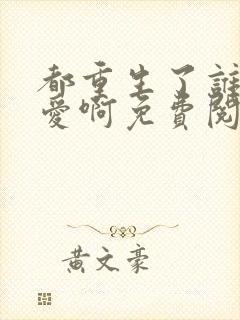 都重生了誰
愛啊免費閱
黃文豪